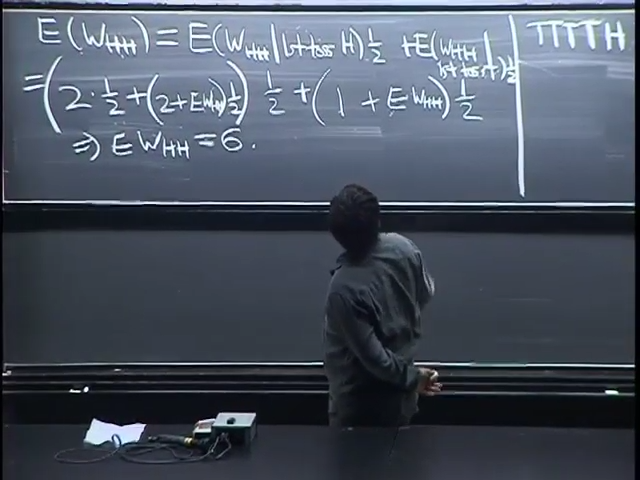 E(W_HH) = E(W_HH | 1st toss H) 1/2 + E(W_HH | 1st toss T) 1/2
= (2·1/2 + (2+EW_HH) 1/2) 1/2 + (1 + EW_HH) 1/2
⇒ EW_HH = 6.
TTTTH